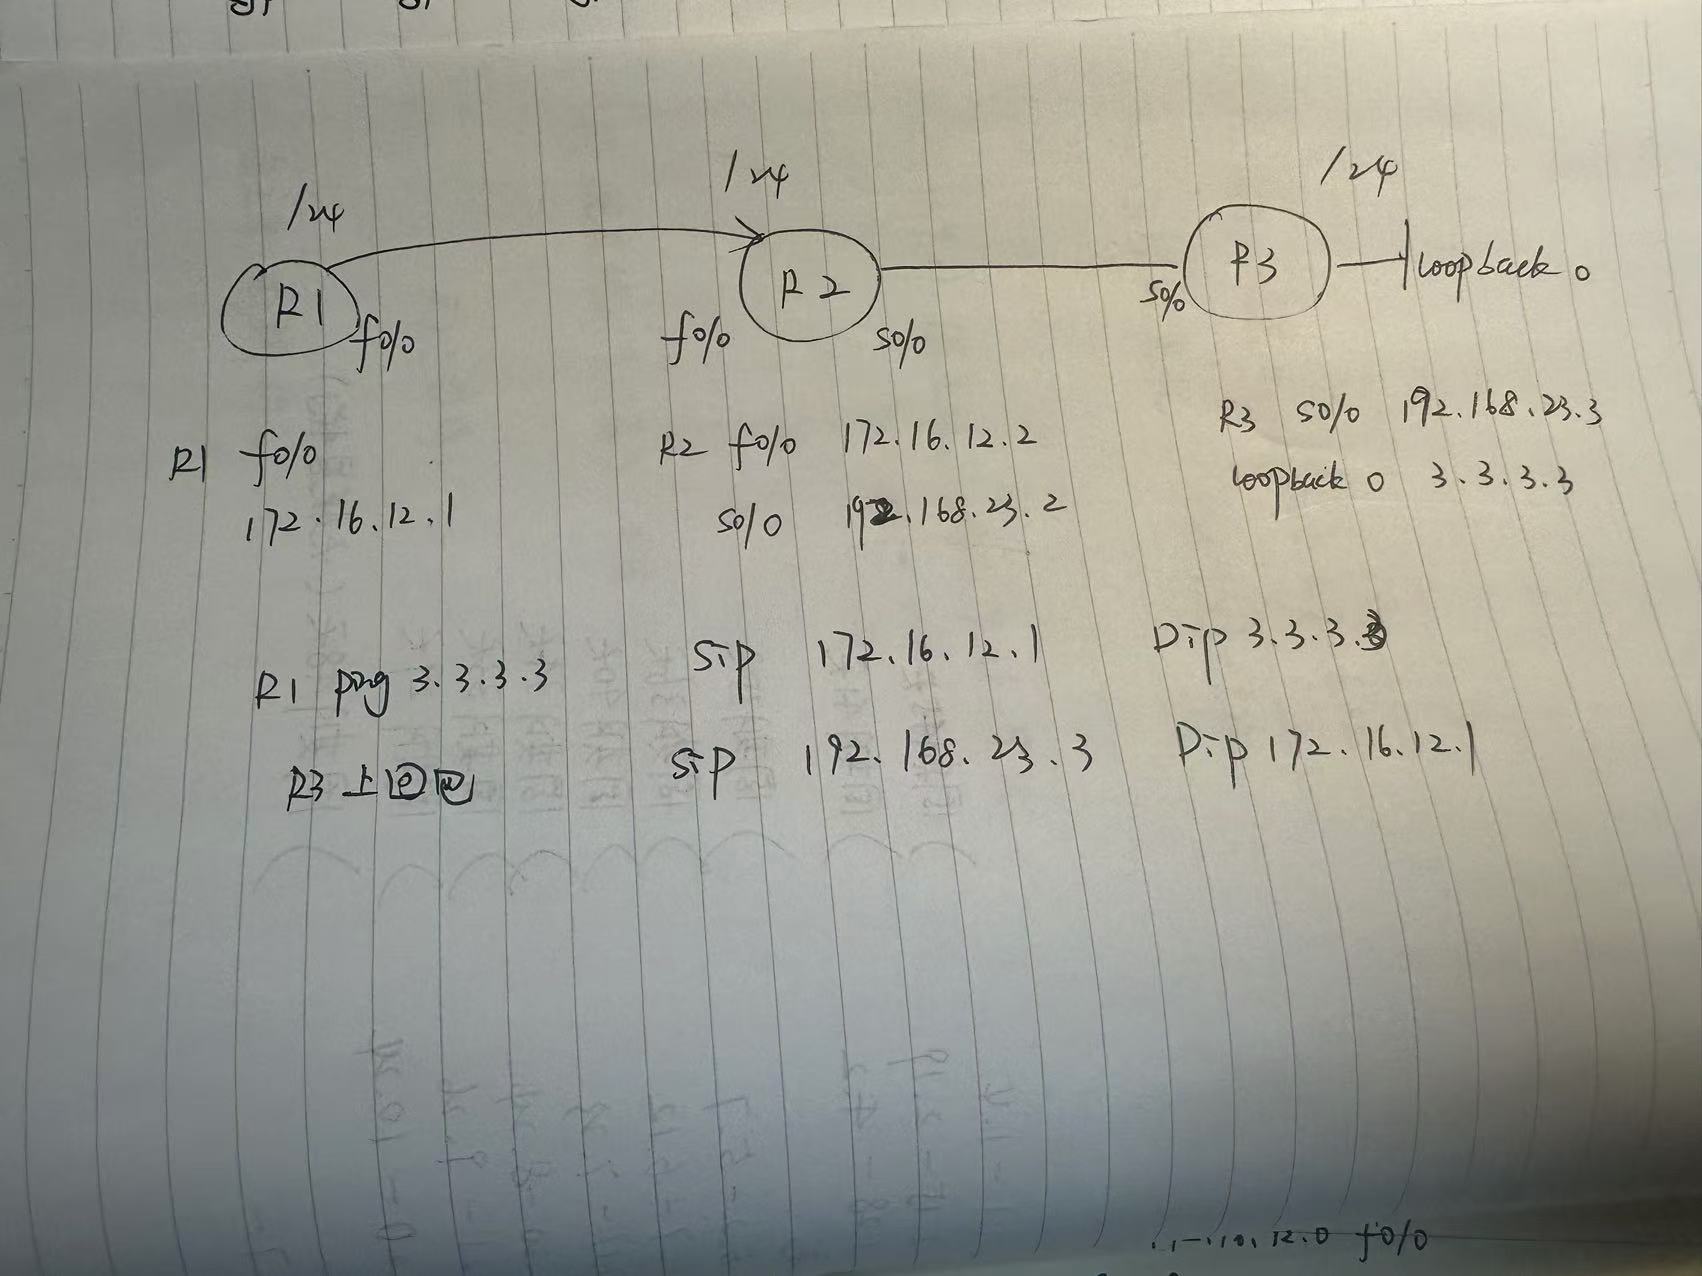 /24 /24 /24
R1 R2 R3 loopback 0
f0/0 f0/0 s0/0 s0/0
R1 f0/0
172.16.12.1
R2 f0/0 172.16.12.2
s0/0 192.168.23.2
R3 s0/0 192.168.23.3
loopback 0 3.3.3.3
R1 ping 3.3.3.3 Sip 172.16.12.1 Dip 3.3.3.3
R3上回包 Sip 192.168.23.3 Dip 172.16.12.1
12.0 f0/0